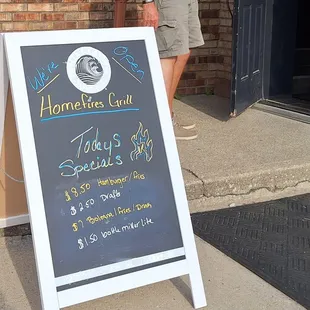 We're Open
Homefires Grill
Todays
Specials
$8.50 Hamburger/fries
$2.50 Drafts
$7 Bologna/fries/Drink
$1.50 bottle miller lite